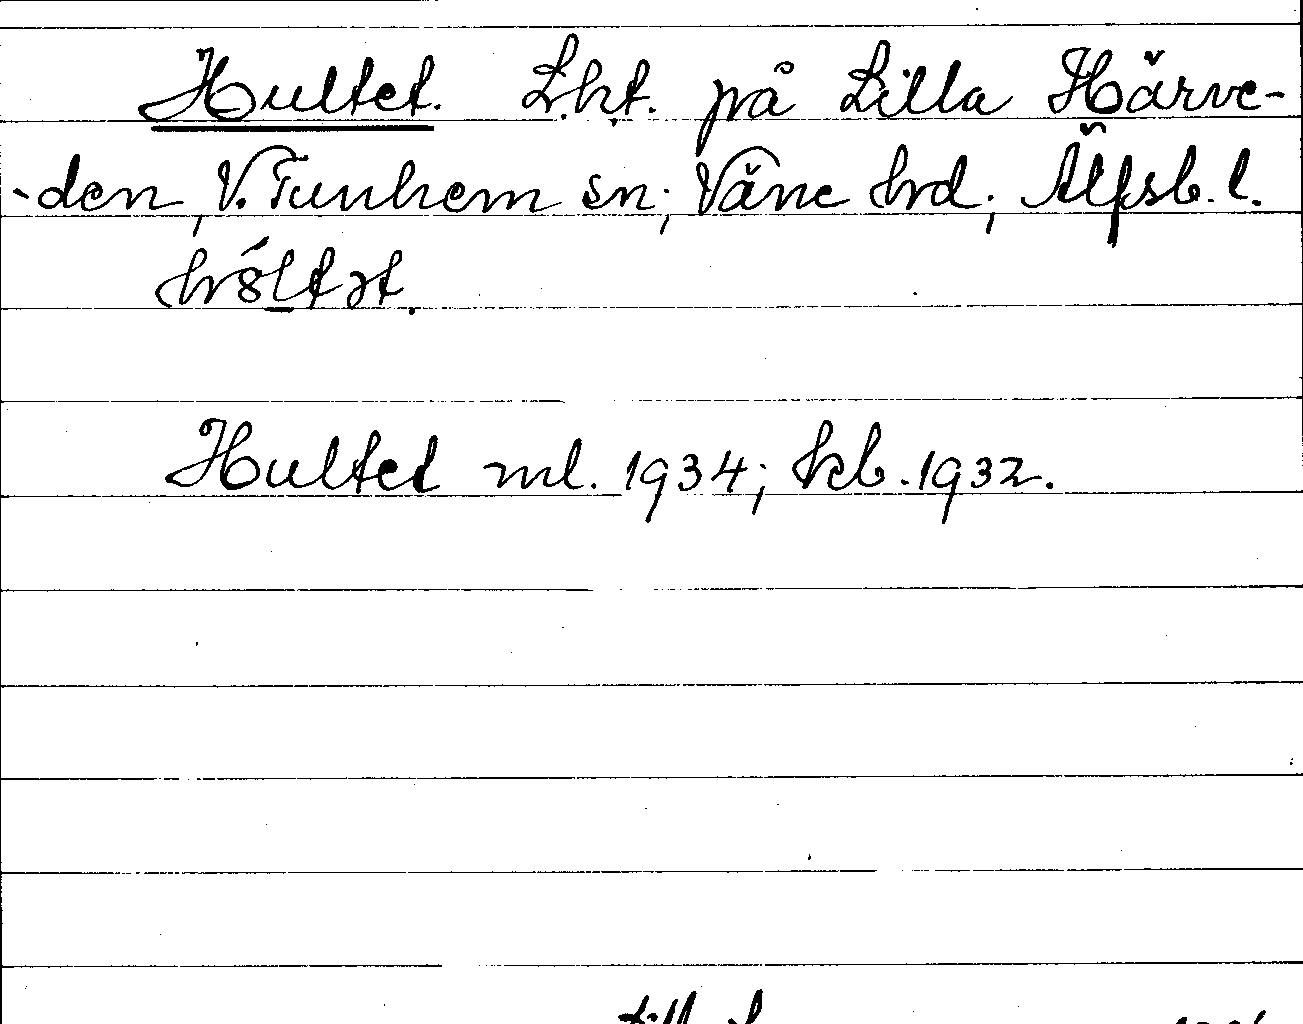 Hultet. L.ht. på Lilla Härve-
-den, V. Tunhem sn; Väne hrd; Älfsb. l.
Hultet ml. 1934; kb. 1932.